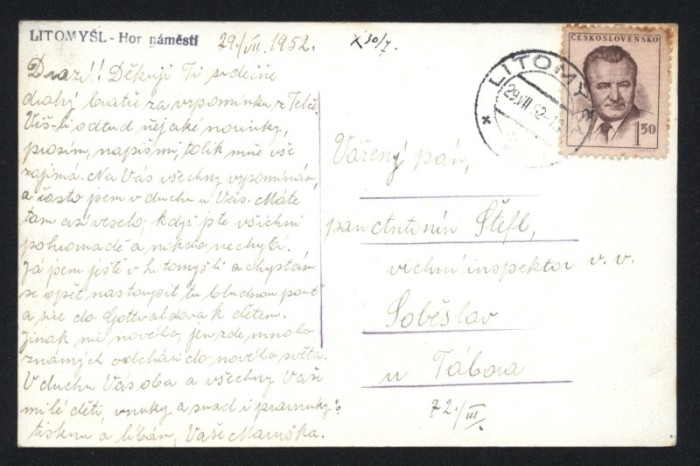 LITOMYŠL - Hor. náměstí
29./VII. 1952.
X 30/7.
ČESKOSLOVENSKO
1.50
LITOMYŠL
29.VII.52
Drazí!! Děkuji Ti srdečně
drahý bratře za vzpomínku z Telče.
Víš-li odtud nějaké novinky,
prosím, napiš mi, tolik mne vše
zajímá. Na Vás všechny vzpomínám,
a často jsem v duchu u Vás. Máte
tam asi veselo, když jste všichni
pohromadě a nikdo nechybí.
Já jsem ještě v Litomyšli a chystám
se opět nastoupit tu bludnou pouť
a sice do Gottwaldova k dětem.
Jinak nic nového, jen zde mnoho
známých odchází do nového světa.
V duchu Vás oba a všechny Vaše
milé děti, vnuky a snad i pravnuky
tisknu a líbám, Vaše Maruška.
Vážený pán,
pan Antonín Štefl,
vrchní inspektor v. v.
Soběslav
u Tábora
72./III.